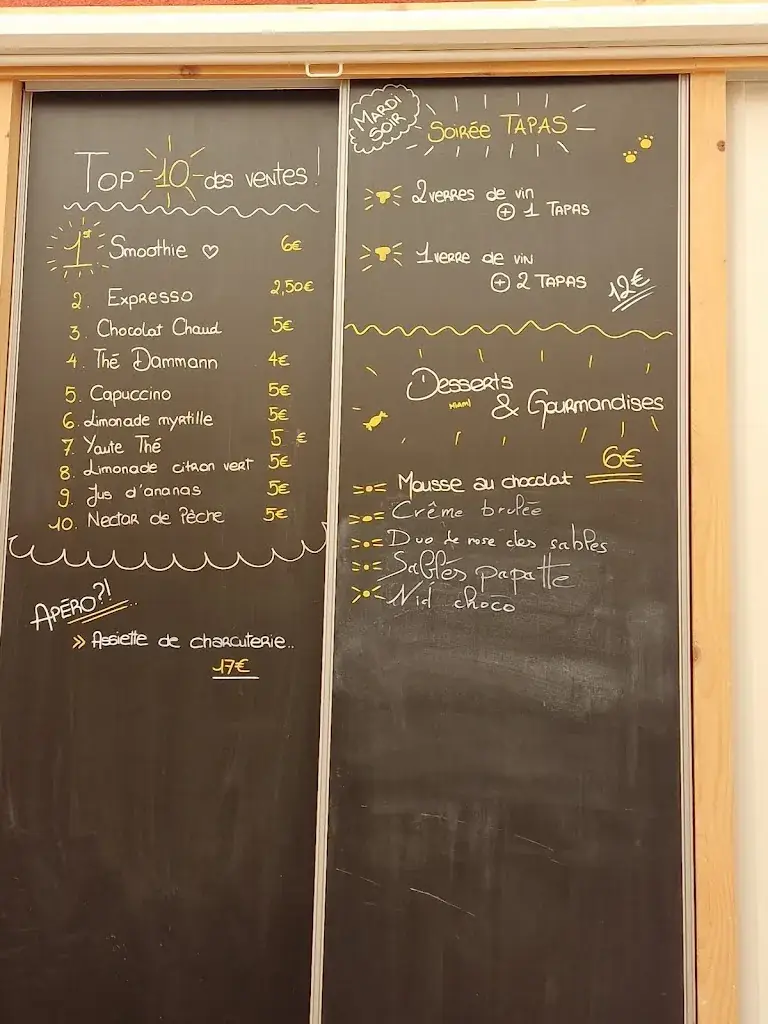 Top 10 des ventes !
1st Smoothie ♡ 6€
2. Expresso 2,50€
3. Chocolat Chaud 5€
4. Thé Dammann 4€
5. Capuccino 5€
6. Limonade myrtille 5€
7. Yaute Thé 5 €
8. Limonade citron vert 5€
9. Jus d'ananas 5€
10. Nectar de Pêche 5€
Apéro?!
» Assiette de charcuterie..
17€
MARDI
SOIR
Soirée TAPAS
2 verres de vin
+ 1 TAPAS
1 verre de vin
+ 2 TAPAS
12€
Desserts
MIAM
& Gourmandises
6€
Mousse au chocolat
Crême brulée
Duo de rose des sables
Sablés papatte
Nid choco